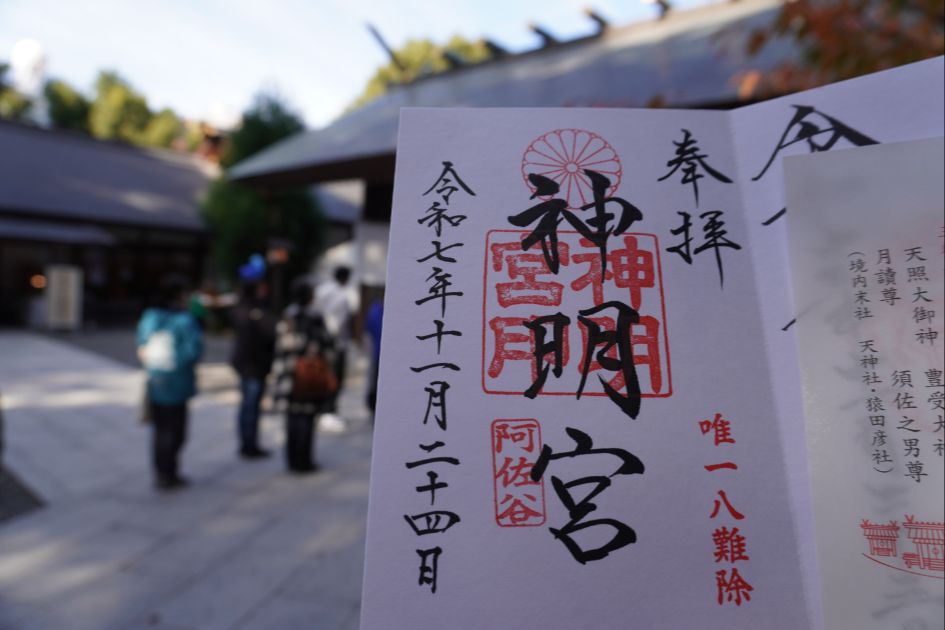 奉拝
唯一八難除
神明宮
神明宮印
阿佐谷
令和七年十一月二十四日
天照大御神
月讀尊
須佐之男尊
(境内末社 天神社・猿田彦社)